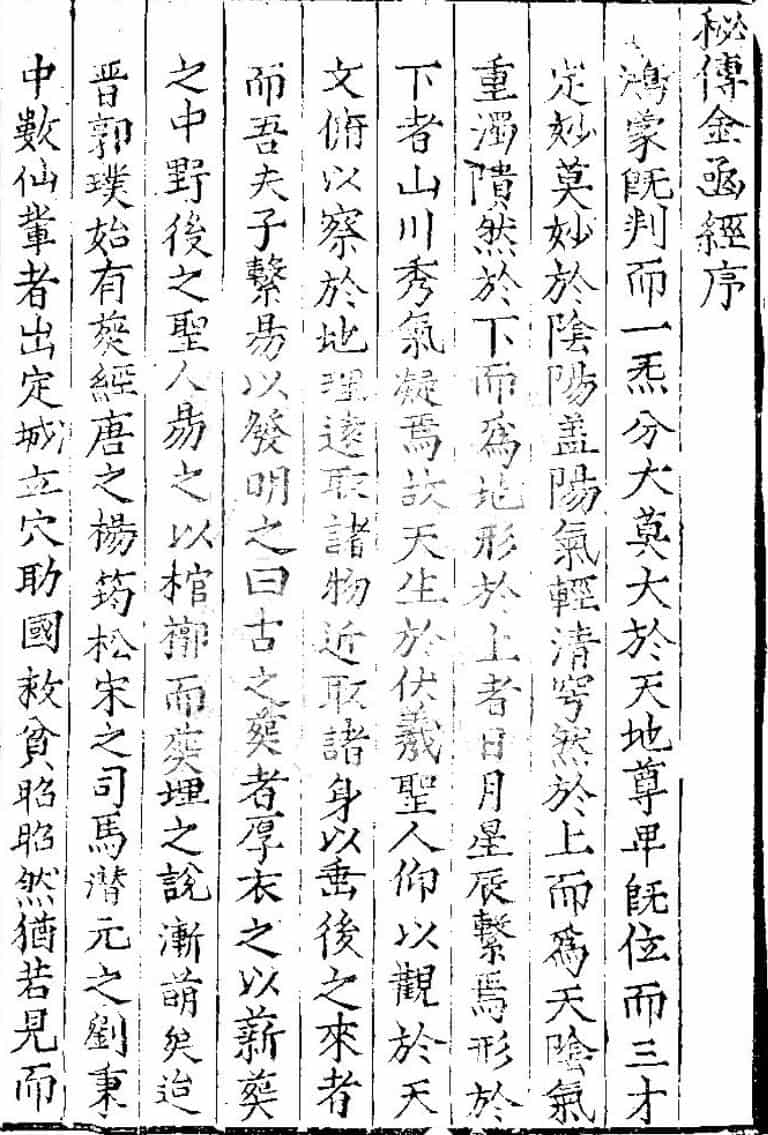 秘傳金函經序
鴻蒙旣判而一炁分大莫大於天地尊卑旣位而三才
定妙莫妙於陰陽盖陽氣輕清穹然於上而爲天陰氣
重濁隤然於下而爲地形於上者日月星辰繫焉形於
下者山川秀氣凝焉故天生於伏羲聖人仰以觀於天
文俯以察於地理遠取諸物近取諸身以垂後之來者
而吾夫子繫易以發明之曰古之葬者厚衣之以薪葬
之中野後之聖人易之以棺槨而葬埋之說漸萌矣迨
晋郭璞始有葬經唐之楊筠松宋之司馬潛元之劉秉
中數仙輩者出定城立穴助國救貧昭昭然猶若見而